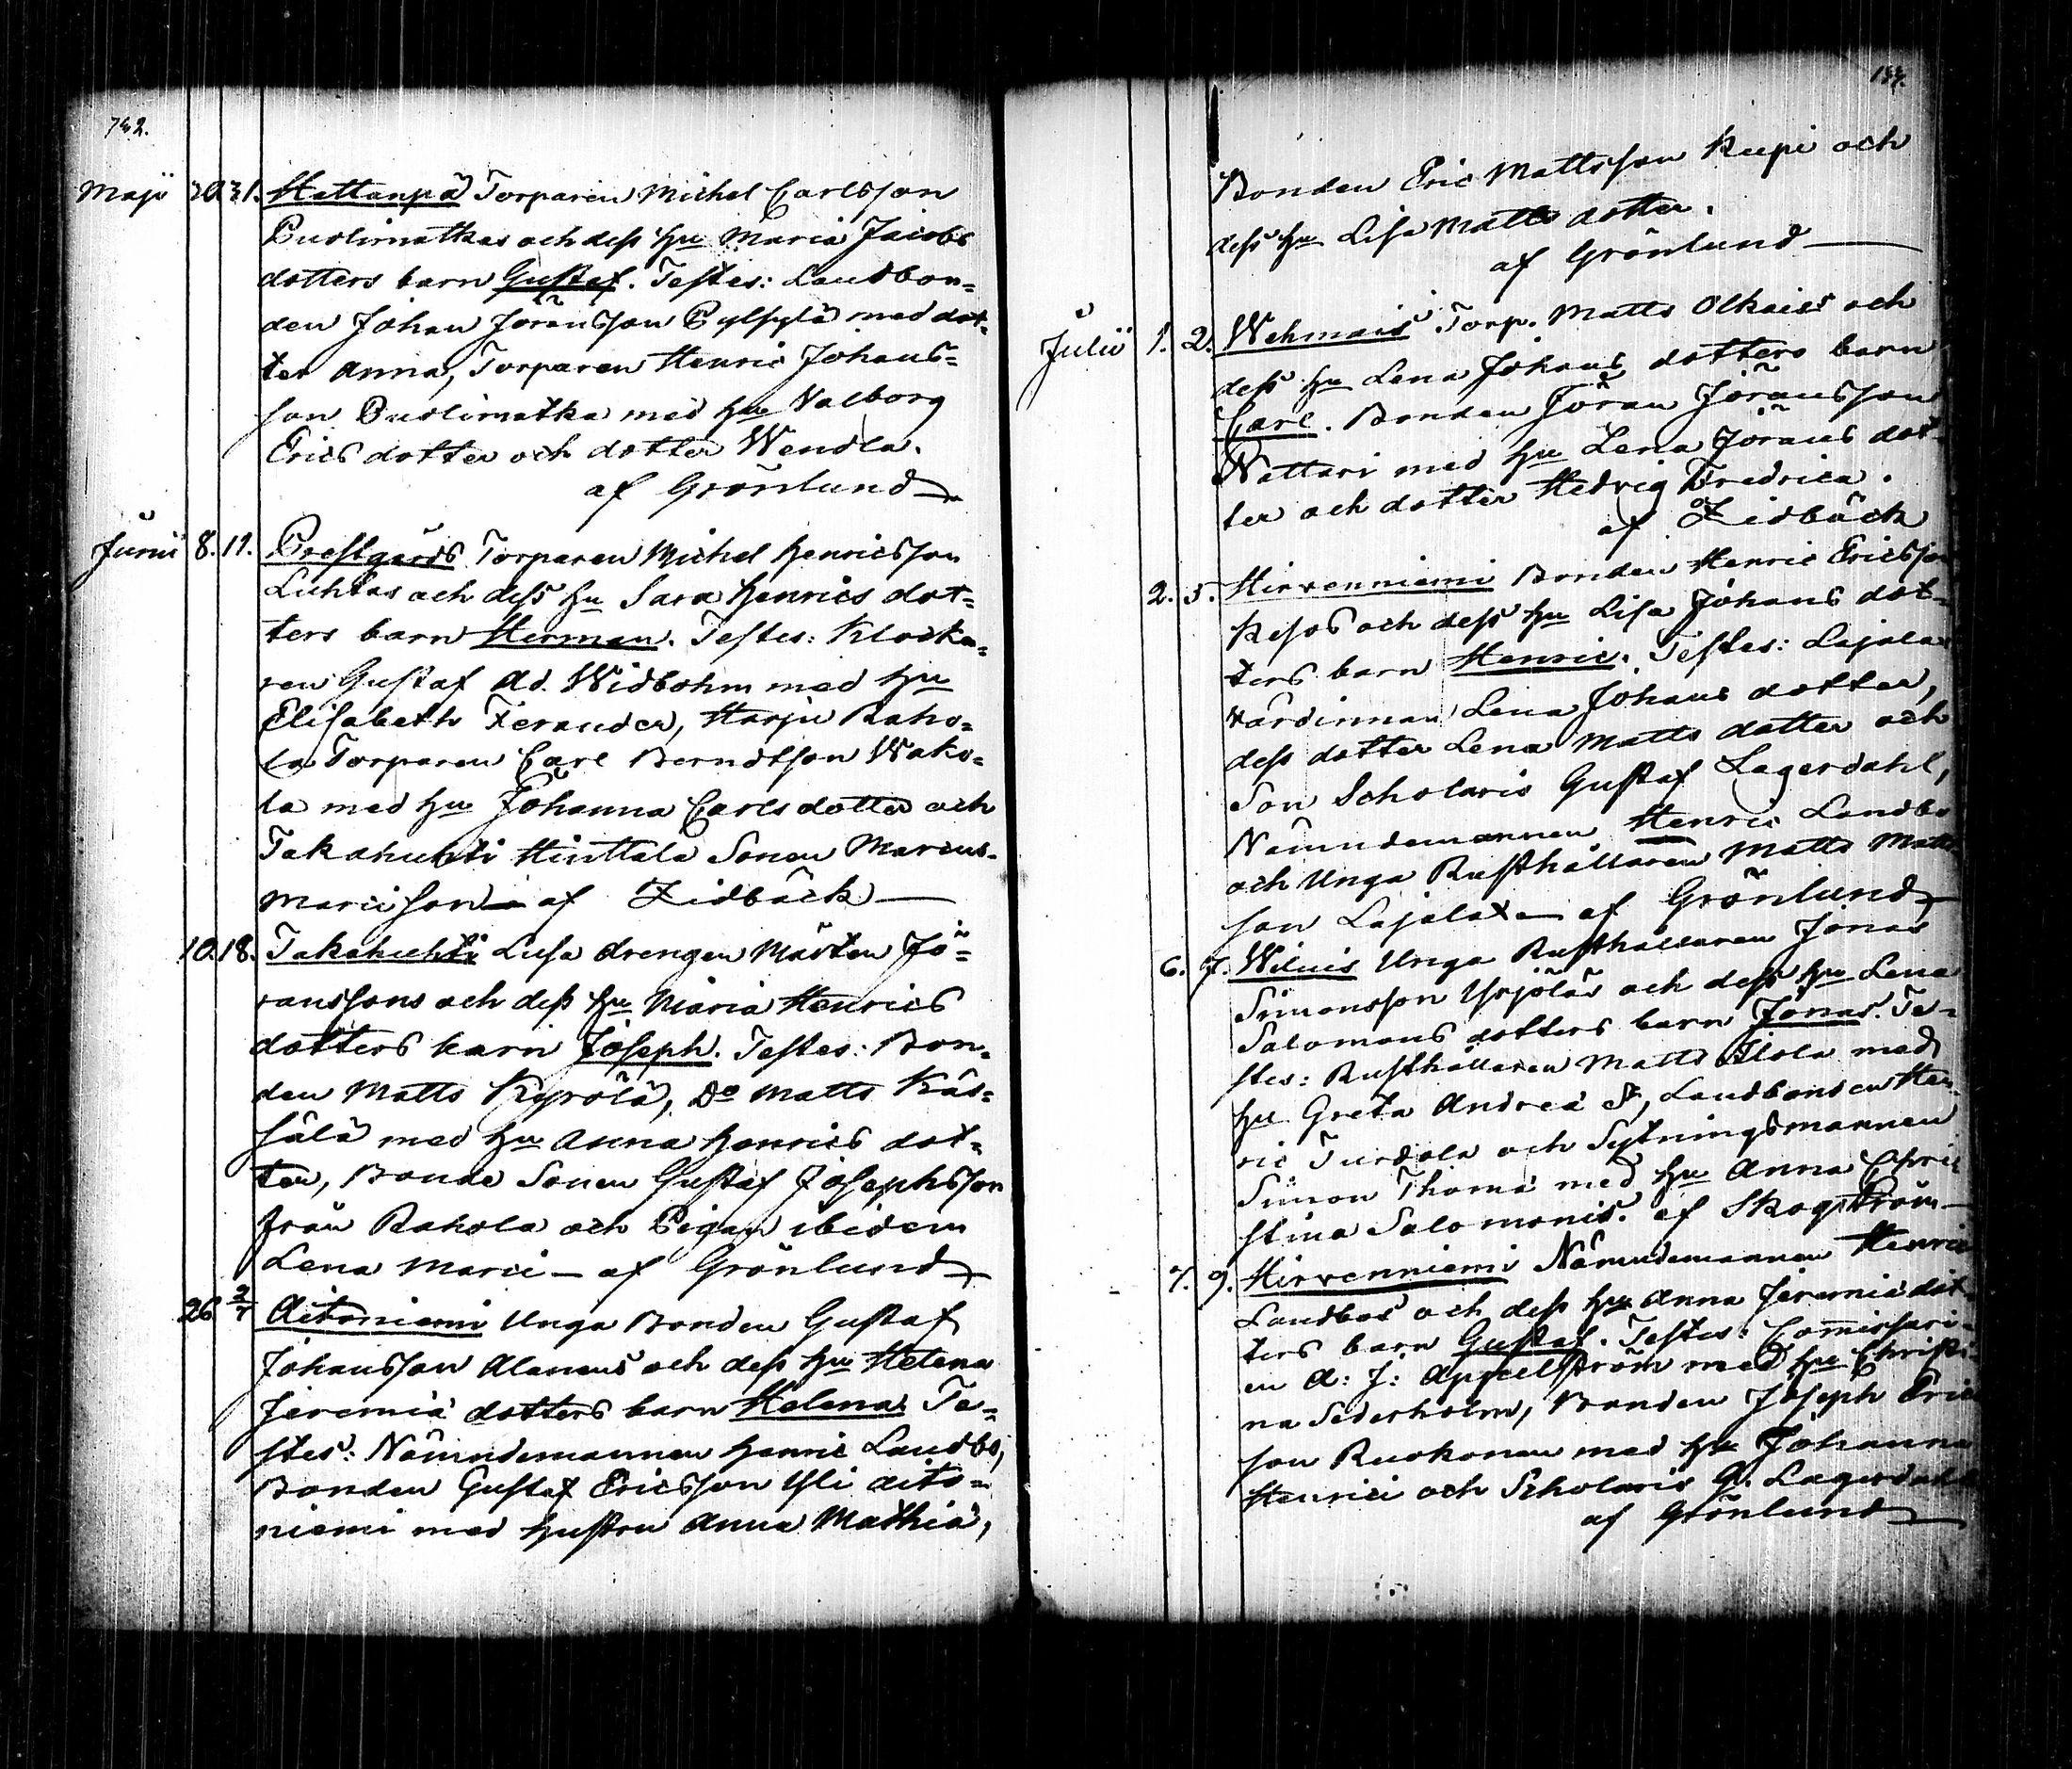 742.
Maji 30. 31. Hattanpä Torparen Michel Carlsson
Puolimatkas och dess hu Maria Jacobs
dotters barn Gustaf. Testes: Landbon=
den Johan Jöransson Pylsylä med dot=
ter Anna, Torparen Henric Johans=
son Puolimatka med hu Valborg
Erics dotter och dotter Wendla.
af Grönlund
Junii 8. 11. Prestgårds Torparen Michel Henricsson
Luhtas och dess hu Sara Henrics dot=
ters barn Herman. Testes: Klocka=
ren Gustaf Ad. Widbohm med hu
Elisabeth Ferander, Harju Raho=
la Torparen Carl Berndtson Wako=
la med hu Johanna Carls dotter och
Takahuhti Hinttala Sonen Marcus
Marcison af Lidbäck
10. 18. Takahuhti Lusa drengen Mårten Jö=
ranssons och dess hu Maria Henrics
dotters barn Joseph. Testes: Bon=
den Matts Kyrölä, Do Matts Käs=
sälä med hu Anna Henrics dot=
ter, Bonde Sonen Gustaf Josephsson
från Rahola och Pigan ibidem
Lena Marci af Grönlund
26. 2/7 Aitoniemi Unga Bonden Gustaf
Johansson Alanens och dess hu Helena
Jeremiæ dotters barn Helena. Te=
stes: Nämndemannen Henric Landbo,
Bonden Gustaf Ericsson Yli aito=
niemi med hustru Anna Mathiæ,
Bonden Eric Mattsson Rupi och
dess hu Lisa Matts dotter.
af Grönlund
Julii 1. 2. Wehmais Torp. Matts Olkais och
dess hu Lena Johans dotters barn
Carl. Bonden Jöran Jöransson
Nattari med hu Lena Jörans dot=
ter och dotter Hedvig Fredrica.
af Lidbäck
2. 5. Hirvenniemi Bonden Henric Ericsson
Kesos och dess hu Lisa Johans dot=
ters barn Henric. Testes: Lajala
värdinnan Lena Johans dotter,
dess dotter Lena Matts dotter och
Son Scholaris Gustaf Lagerdahl,
Nämndemannen Henric Landbo
och Unga Rusthållaren Matts Matts
son Lajala af Grönlund
6. 7. Wiluis Unga Rusthållaren Jonas
Simonsson Yrjöläs och dess hu Lena
Salomons dotters barn Jonas. Te=
stes: Rusthållaren Matts Alola med
hu Greta Andreæ Landbonden Hen=
ric Turdola och Sytningsmannen
Simon Thomæ med hu Anna Chri
stina Salomonis. af Skogström
7. 9. Hirvenniemi Nämndemannen Henric
Landbos och dess hu Anna Jeremiæ dot
ters barn Gustaf. Testes: Comissari=
en A: J: Appelström med hu Christi=
na Sederholm, Bonden Joseph Eric
son Ruokonen med hu Johanna
Henrici och Scholaris G. Lagerdahl
af Grönlund